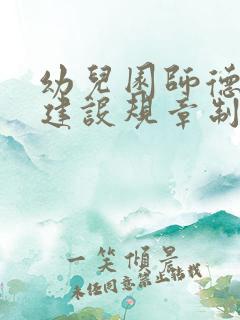 幼兒園師德
建設規章制
一笑傾晨
未經同意禁止轉載